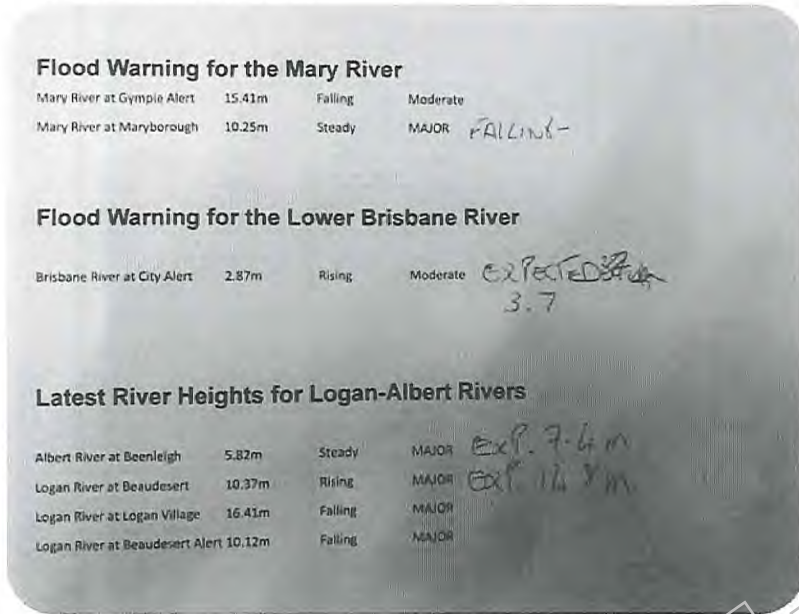 Flood Warning for the Mary River
Mary River at Gympie Alert 15.41m Falling Moderate
Mary River at Maryborough 10.25m Steady MAJOR FALLING
Flood Warning for the Lower Brisbane River
Brisbane River at City Alert 2.87m Rising Moderate EXPECTED
3.7
Latest River Heights for Logan-Albert Rivers
Albert River at Beenleigh 5.82m Steady MAJOR EXP. 7.4 m
Logan River at Beaudesert 10.37m Rising MAJOR EXP. m
Logan River at Logan Village 16.41m Falling MAJOR
Logan River at Beaudesert Alert 10.12m Falling MAJOR